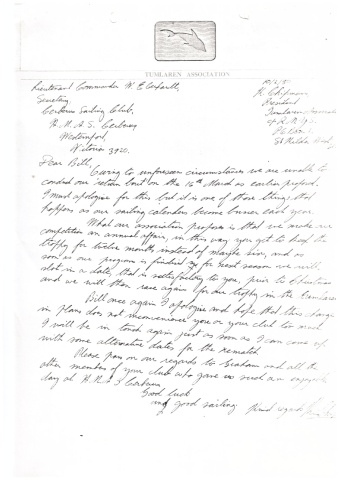 TUMLAREN ASSOCIATION
Lieutenant Commander W. E.
R. Chipman
Secretary
President
Cerberus Sailing Club,
Tumlaren
H.M.A.S. Cerberus
Westernport,
St Kilda Road
Victoria 3920.
Dear Bill,
Owing to unforeseen circumstances we are unable to
conduct our return bout on the 16th March as earlier proposed.
I must apologise for this but it is one of those things that
happens as our sailing calendar becomes busier each year.
What our association propose is that we make our
competition an annual affair, in this way you get to keep the
trophy for twelve months instead of maybe six, and as
soon as our program is finished for next season we will
slot in a date, that is satisfactory to you, prior to Christmas
and we will then race again for our trophy in the Tumlaren
Bill once again I apologise and hope that this change
in plans does not inconvenience you or your club too much
I will be in touch again just as soon as I can come up
with some alternative dates for the rematch
Please pass on our regards to Graham and all the
other members of your club who gave us such an enjoyable
day at H.M.A.S Cerberus
Good luck
and good sailing Kind regards